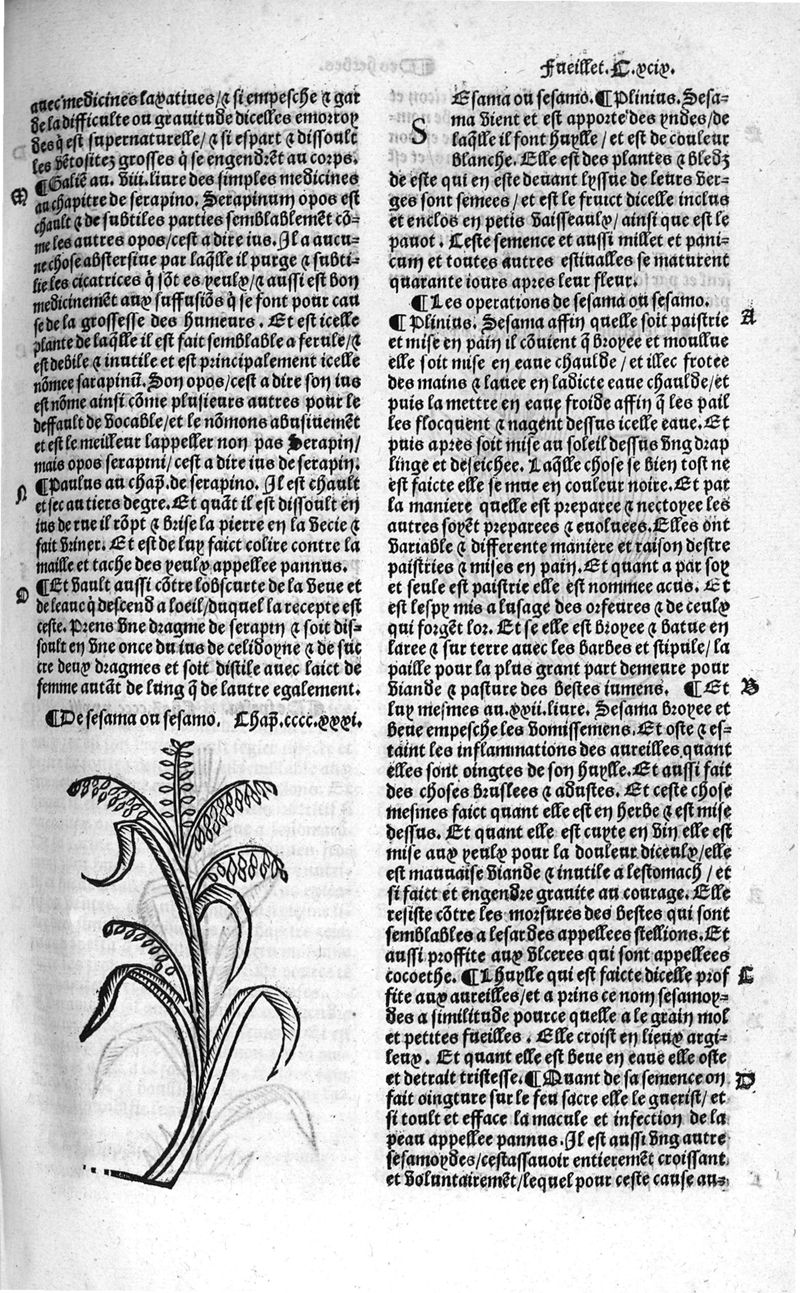 Fueillet.C.xcix.
auec medicines laxatiues/⁊ si empesche ⁊ gar
de la difficulte ou grauitude dicelles emorroy
des q̃ est supernaturelle/⁊ si espart ⁊ dissoult
les vẽtositez grosses q̃ se engendrẽt au corps.
M
¶Galiẽ au. viii. liure des simples medicines
au chapitre de serapino. Serapinum opos est
chault ⁊ de subtiles parties semblablemẽt cõ-
me les autres opos/cest a dire ius. Il a aucu-
ne chose abstersiue par laq̃lle il purge ⁊ subti-
lie les cicatrices q̃ sõt es yeulx/⁊ aussi est bon
medicinemẽt aux suffusiõs q̃ se font pour cau
se de la grossesse des humeurs. Et est icelle
plante de laq̃lle il est fait semblable a ferule/⁊
est debile ⁊ inutile et est principalement icelle
nõmee sarapinũ. Son opos/cest a dire son ius
est nõme ainsi cõme plusieurs autres pour le
deffault de vocable/et le nõmons abusiuemẽt
et est le meilleur lappeller non pas Serapin/
mais opos serapini/cest a dire ius de serapin.
N
¶Paulus au chap̃. de serapino. Il est chault
et sec au tiers degre. Et quãt il est dissoult en
ius de rue il rõpt ⁊ brise la pierre en la vecie ⁊
fait vriner. Et est de luy faict colire contre la
maille et tache des yeulx appellee pannus.
O
¶Et vault aussi cõtre lobscurte de la veue et
de leaue q̃ descend a loeil/duquel la recepte est
ceste. Prens vne dragme de serapin ⁊ soit dis-
soult en vne once du ius de celidoyne ⁊ de suc
cre deux dragmes et soit distile auec laict de
femme autãt de lung q̃ de lautre egalement.
¶De sesama ou sesamo. Chap̃. cccc.xxxi.
SEsama ou sesamo. ¶Plinius. Sesa-
ma vient et est apporte des yndes/de
laq̃lle il font huylle/et est de couleur
blanche. Elle est des plantes ⁊ bledz
de este qui en este deuant lyssue de leurs ver-
ges sont semees/et est le fruict dicelle inclus
et enclos en petis vaisseaulx/ainsi que est le
pauot. Ceste semence et aussi millet et pani-
cum et toutes autres estiualles se maturent
quarante iours apres leur fleur.
¶Les operations de sesama ou sesamo.
A
¶Plinius. Sesama affin quelle soit paistrie
et mise en pain il cõuient q̃ broyee et moullue
elle soit mise en eaue chaulde/et illec frotee
des mains ⁊ lauee en ladicte eaue chaulde/et
puis la mettre en eaue froide affin q̃ les pail
les flocquent ⁊ nagent dessus icelle eaue. Et
puis apres soit mise au soleil dessus vng drap
linge et deseichee. Laq̃lle chose se bien tost ne
est faicte elle se mue en couleur noire. Et par
la maniere quelle est preparee ⁊ nectoyee les
autres soyẽt preparees ⁊ euoluees. Elles ont
variable ⁊ differente maniere et raison destre
paistries ⁊ mises en pain. Et quant a par soy
et seule est paistrie elle est nommee acus. Et
est lespy mis a lusage des orfeures ⁊ de ceulx
qui forgẽt lor. Et se elle est broyee ⁊ batue en
laree ⁊ sur terre auec les barbes et stipule/la
paille pour la plus grant part demeure pour
viande ⁊ pasture des bestes iumens. ¶Et
B
luy mesmes au.xxii.liure. Sesama broyee et
beue empesche les vomissemens. Et oste ⁊ es-
taint les inflammations des aureilles quant
elles sont oingtes de son huylle. Et aussi fait
des choses bruslees ⁊ adustes. Et ceste chose
mesmes faict quant elle est en herbe ⁊ est mise
dessus. Et quant elle est cuyte en vin elle est
mise aux yeulx pour la douleur diceulx/elle
est mauuaise viande ⁊ inutile a lestomach/et
si faict et engendre grauite au courage. Elle
resiste cõtre les morsures des bestes qui sont
semblables a lesardes appellees stellions. Et
aussi proffite aux vlceres qui sont appellees
cocoethe. ¶Lhuylle qui est faicte dicelle prof
C
fite aux aureilles/et a prins ce nom sesamoy-
des a similitude pource quelle a le grain mol
et petites fueilles. Elle croist en lieux argi-
leux. Et quant elle est beue en eaue elle oste
et detrait tristesse. ¶Quant de sa semence on
D
fait oingture sur le feu sacre elle le guerist/et
si toult et efface la macule et infection de la
peau appellee pannus. Il est aussi vng autre
sesamoydes/cestassauoir entieremẽt croissant
et voluntairemẽt/lequel pour ceste cause au-